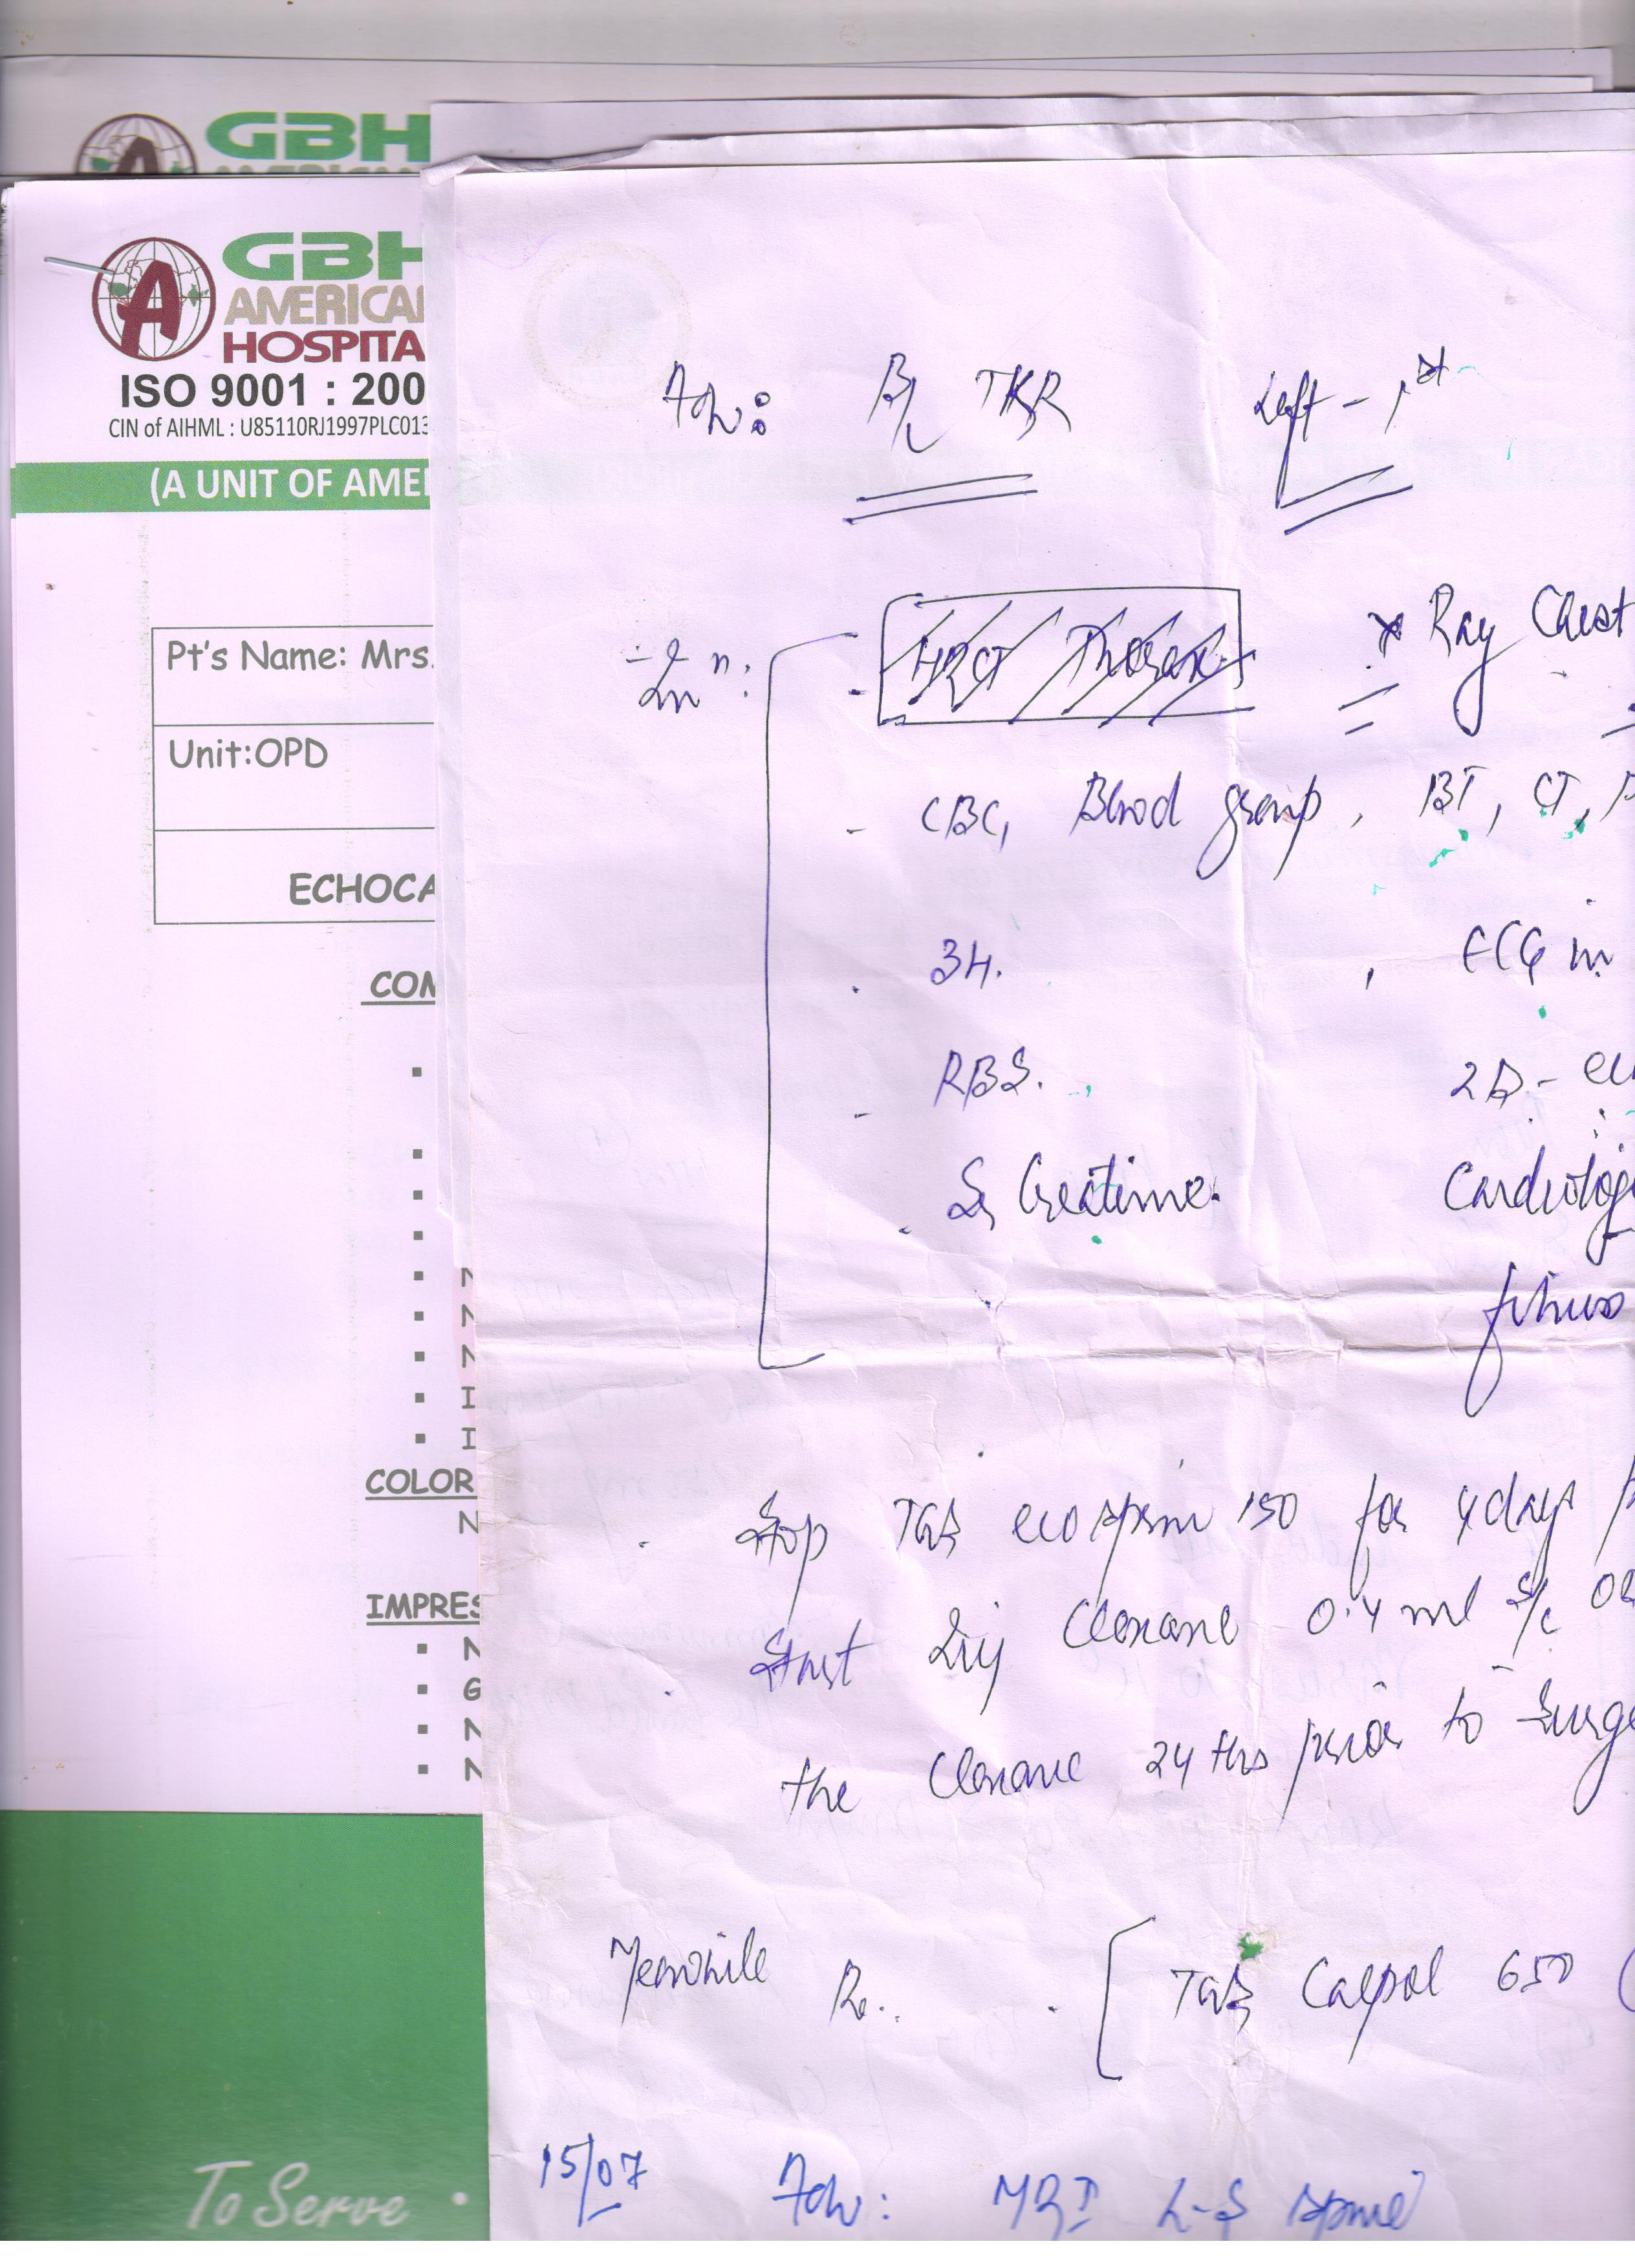 GBH
GBH
AMERICA
HOSPITA
ISO 9001 : 200
CIN of AIHML : U85110RJ1997PLC013
(A UNIT OF AME
Pt's Name: Mrs.
Unit:OPD
ECHOCA
COM
N
N
N
I
I
COLOR
N
IMPRES
N
G
N
N
To Serve
Adv: B/L TKR Left - 1st
Inn: - HRCT Thorax X Ray Chest
- CBC, Blood group, BT, CT,
. 3H. , ECG
- RBS. 2D-
. Sr Creatinine. Cardiolog
fitness
. Stop Tab ecosprin 150 for 4 days
. Start Inj Clexane 0.4 ml s/c
the Clexane 24 Hrs prior to Surge
Meanwhile Rx. . Tab Calpol 650 (
15/07 Adv: MRI L-S Spine